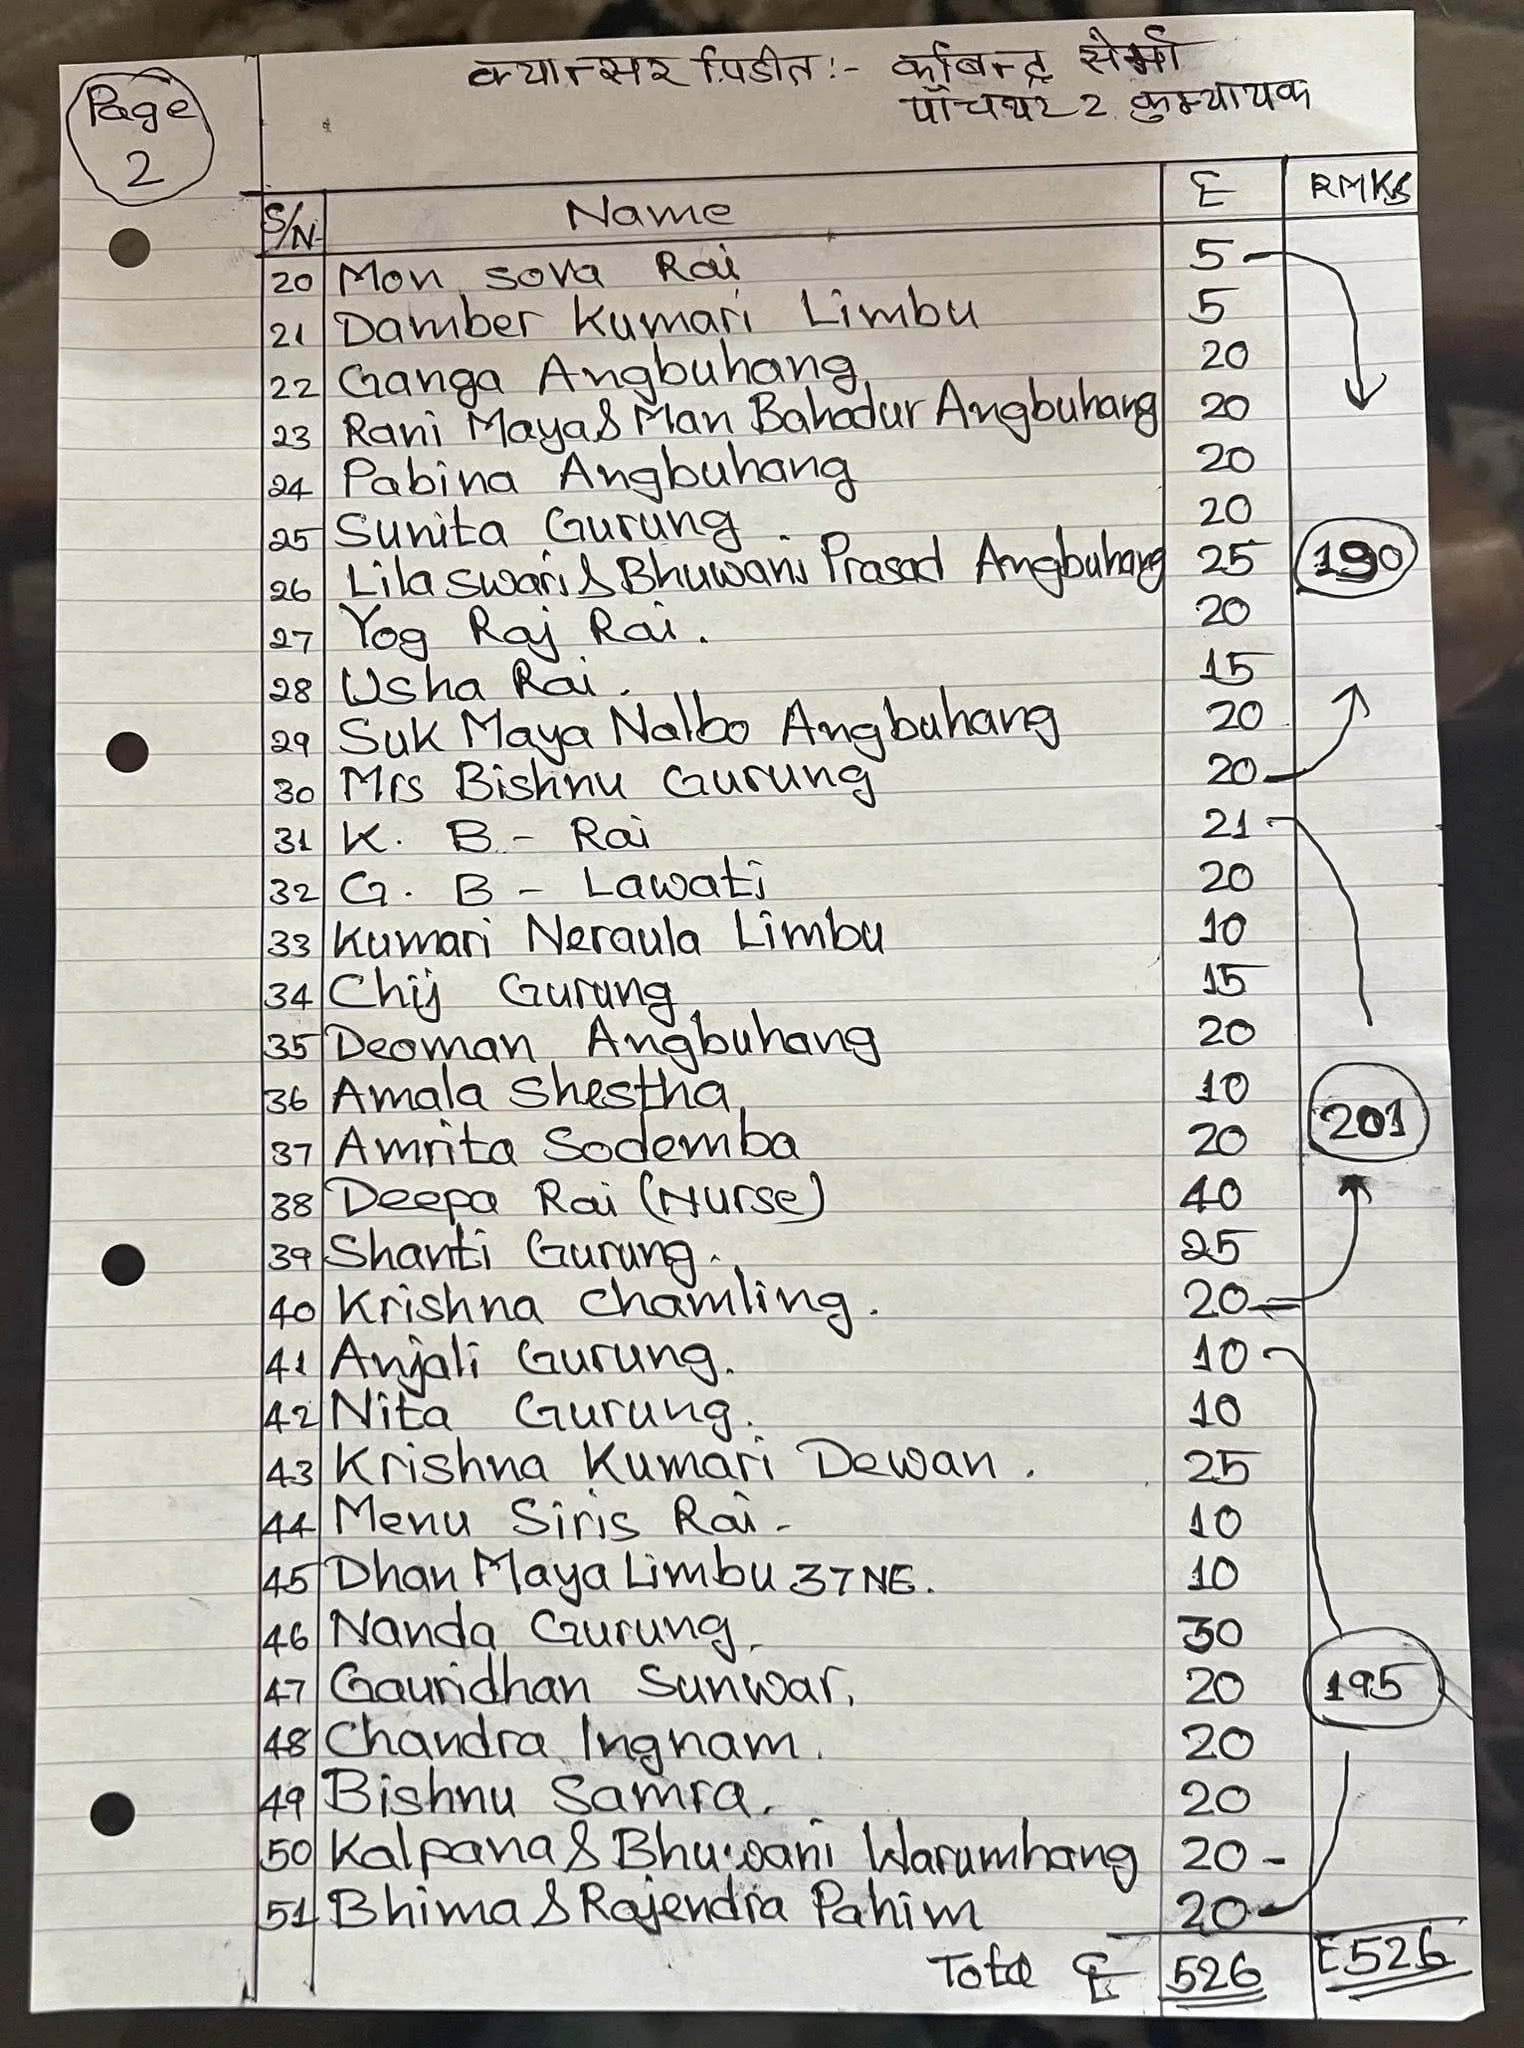 Page
2
क्यान्सर पिडीत:- कविन्द्र सेर्मा
पाँचथर 2 कुम्यायक
S/N Name £ RMKS
20 Mon sova Rai 5
21 Damber Kumari Limbu 5
22 Ganga Angbuhang 20
23 Rani Maya & Man Bahadur Angbuhang 20
24 Pabina Angbuhang 20
25 Sunita Gurung 20
26 Lila swari & Bhuwani Prasad Angbuhang 25 190
27 Yog Raj Rai. 20
28 Usha Rai. 15
29 Suk Maya Nalbo Angbuhang 20
30 Mrs Bishnu Gurung 20
31 K. B - Rai 21
32 G. B - Lawati 20
33 Kumari Neraula Limbu 10
34 Chij Gurung 15
35 Deoman Angbuhang 20
36 Amala Shestha 10
37 Amrita Sodemba 20 201
38 Deepa Rai (Nurse) 40
39 Shanti Gurung. 25
40 Krishna Chamling. 20
41 Anjali Gurung. 10
42 Nita Gurung. 10
43 Krishna Kumari Dewan. 25
44 Menu Siris Rai - 10
45 Dhan Maya Limbu 37NE. 10
46 Nanda Gurung. 30
47 Gauridhan Sunwar. 20 195
48 Chandra Ingnam. 20
49 Bishnu Samra. 20
50 Kalpana & Bhuwani Warumhang 20 -
51 Bhima & Rajendra Pahim 20
Total £ 526 £526